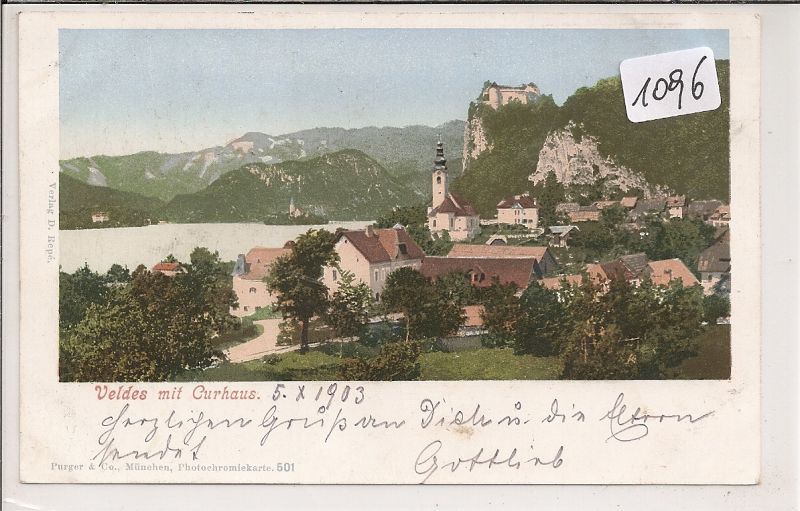 1096
Verlag D. Repé.
Veldes mit Curhaus. 5. X 1903
herzlichen Gruß an Dich u. die Eltern
sendet
Gottlieb
Purger & Co., München, Photochromiekarte. 501